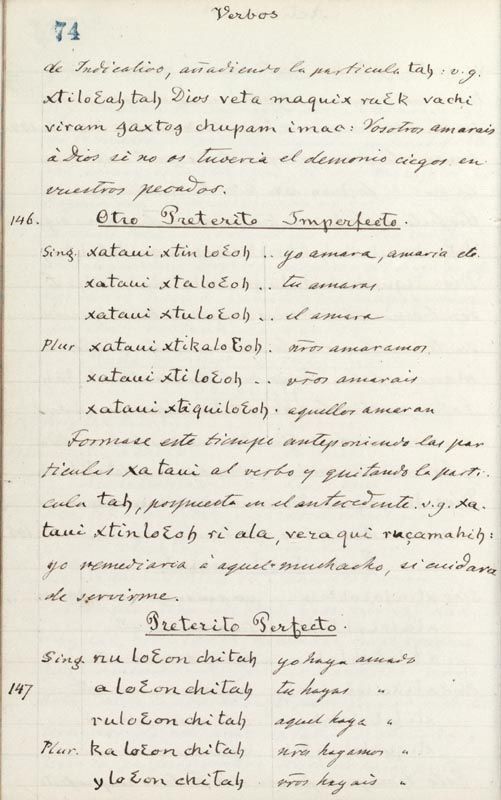 Verbos
74
de Indicativo, añadiendo la particula tah: v.g.
xtiloƐah tah Dios veta maquix ruƐk vachi
viram ȝaxtoȝ chupam imac: Vosotros amarais
à Dios si no os tuveria el demonio ciegos en
vuestros pecados.
146. Otro Preterito Imperfecto.
Sing. xataui xtinloƐoh .. yo amara, amaria etc.
xataui xtaloƐoh .. tu amaras
xataui xtuloƐoh .. el amara
Plur xataui xtikaloƐoh . nr̃os amaramos.
xataui xtiloƐoh .. vr̃os amarais
xataui xtiquiloƐoh . aquellos amaran
Formase este tiempo anteponiendo las par
ticulas xataui al verbo y quitando la parti-
cula tah, pospuesta en el antecedente. v.g. xa-
taui xtinloƐoh ri ala, vera qui ruçamahih:
yo remediaria à aquel muchacho, si cuidara
de servirme.
Preterito Perfecto.
Sing. nuloƐon chitah yo haya amado
147 aloƐon chitah tu hayas "
ruloƐon chitah aquel haya "
Plur. kaloƐon chitah nr̃os hagamos "
yloƐon chitah vr̃os hayais "